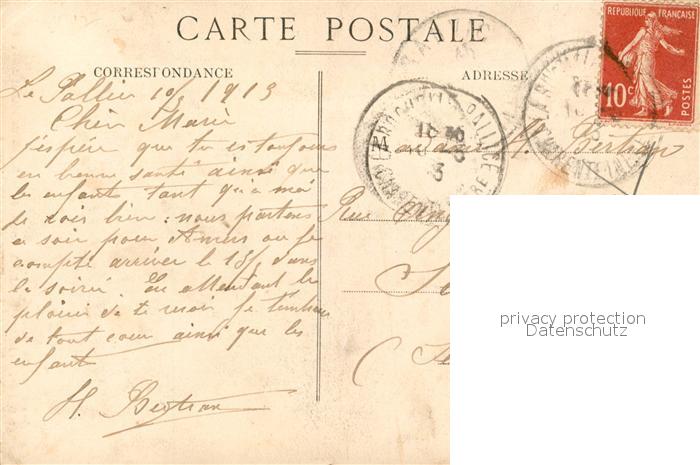 CARTE POSTALE
CORRESPONDANCE
ADRESSE
RÉPUBLIQUE FRANÇAISE
10c
POSTES
La Pallice 10/5 1913
Chère Marie
J'espère que tu es toujours
en bonne santé ainsi que
les enfants tant qu'a moi
je vois bien : nous partons
ce soir pour Anvers ou je
compte arriver le 13/5 dans
la soirée En attendant le
plaisir de te revoir je t'embrasse
de tout coeur ainsi que les
enfants
H. Bertran
Madame H. Bertran
Rue
LA ROCHELLE-PALLICE
CHARENTE-INFRE
privacy protection
Datenschutz